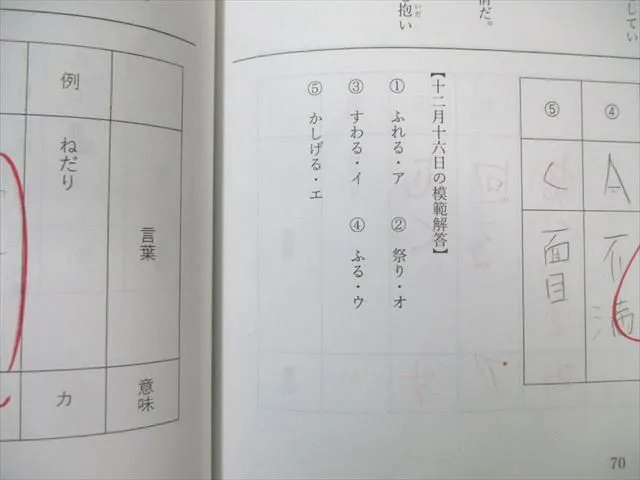 してい
情だ。
抱い
いだ
④
A
不満
⑤
く
面目
【十二月十六日の模範解答】
① ふれる・ア
② 祭り・オ
③ すわる・イ
④ ふる・ウ
⑤ かしげる・エ
70
言葉
意味
例
ねだり
カ